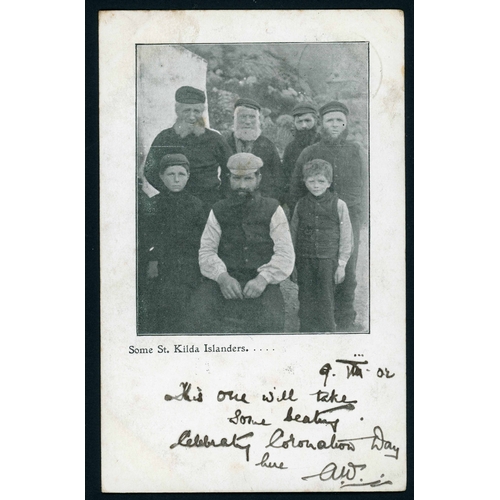 Some St. Kilda Islanders. . . . .
9. VIII. 02
This one will take
some beating.
Celebratg Coronation Day
here AW.